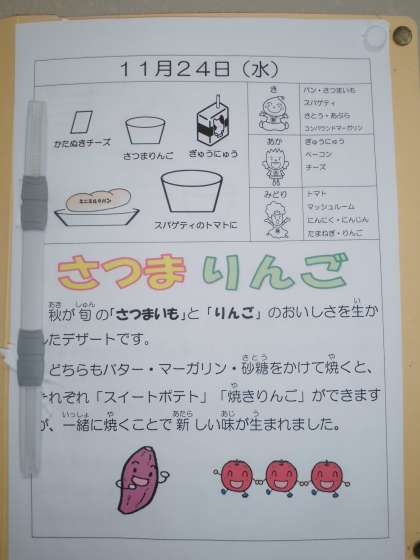 11月24日（水）
かたぬきチーズ
さつまりんご
ぎゅうにゅう
ミニミルクパン
スパゲティのトマトに
き
パン・さつまいも
スパゲティ
さとう・あぶら
コンパウンドマーガリン
あか
ぎゅうにゅう
ベーコン
チーズ
みどり
トマト
マッシュルーム
にんにく・にんじん
たまねぎ・りんご
さつまりんご
秋が旬の「さつまいも」と「りんご」のおいしさを生か
したデザートです。
どちらもバター・マーガリン・砂糖をかけて焼くと、
それぞれ「スイートポテト」「焼きりんご」ができます
が、一緒に焼くことで新しい味が生まれました。